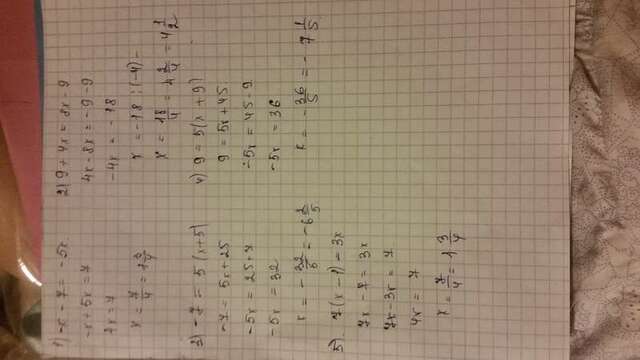 1) -x - 7 = -5x
-x + 5x = 7
4x = 7
x = 7/4 = 1 3/4
2) 9 + 4x = 8x - 9
4x - 8x = -9 - 9
-4x = -18
x = -18 : (-4) -
x = 18/4 = 4 2/4 = 4 1/2
3) -7 = 5(x+5)
-7 = 5x + 25
-5x = 25 + 7
-5x = 32
x = - 32/5 = -6 2/5
4) 9 = 5(x + 9)
9 = 5x + 45
-5x = 45 - 9
-5x = 36
x = - 36/5 = - 7 1/5
5) 7(x - 1) = 3x
7x - 7 = 3x
7x - 3x = 7
4x = 7
x = 7/4 = 1 3/4